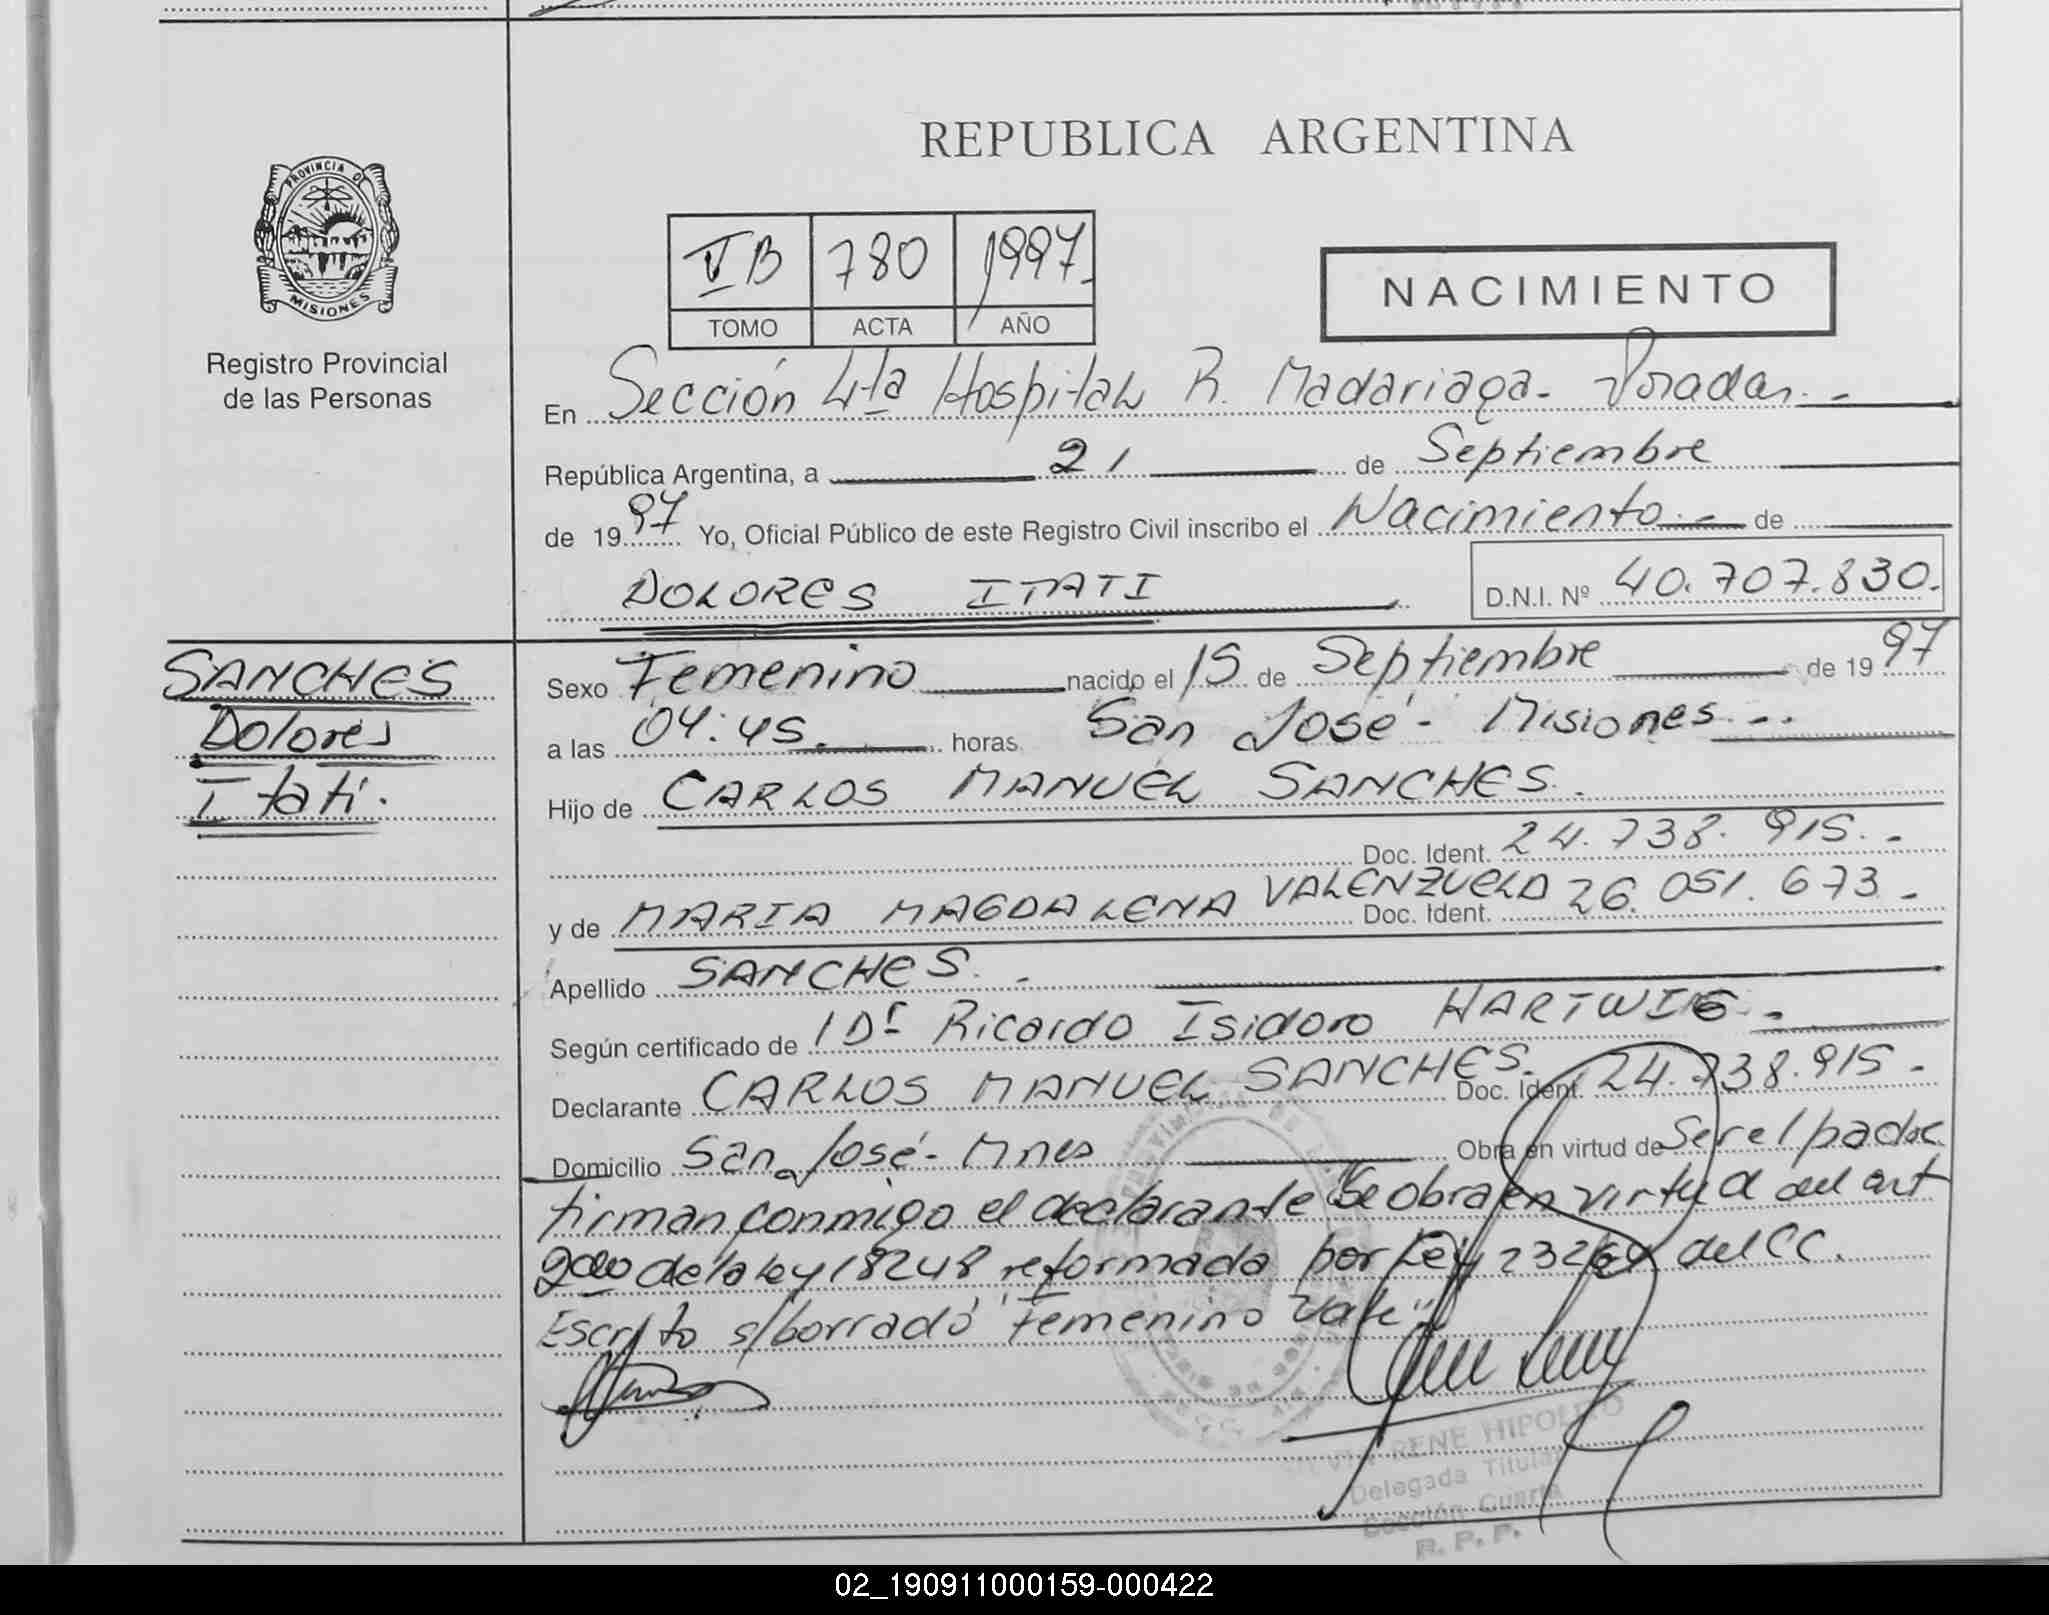 REPUBLICA ARGENTINA
PROVINCIA DE
MISIONES
Registro Provincial
de las Personas
V B 780 1997
TOMO ACTA AÑO
NACIMIENTO
En Sección 4ta Hospital R. Madariaga - Posadas. -
República Argentina, a 21 de Septiembre
de 19 97 Yo, Oficial Público de este Registro Civil inscribo el Nacimiento - de
DOLORES ITATI D.N.I. Nº 40.707.830.
SANCHES
Dolores
Itati.
Sexo Femenino nacido el 15 de Septiembre de 19 97
a las 04:45. horas San José - Misiones. -
Hijo de CARLOS MANUEL SANCHES.
Doc. Ident. 24.738.915. -
y de MARIA MAGDALENA VALENZUELA Doc. Ident. 26.051.673. -
Apellido SANCHES. -
Según certificado de Dr Ricardo Isidoro HARTWIG. -
Declarante CARLOS MANUEL SANCHES. Doc. Ident. 24.738.915. -
Domicilio San José - Mnes Obra en virtud de Ser el padre
firman conmigo el declarante Se obra en virtud del art
2do de la ley 18248 reformada por Ley 23264 del CC.
Escrito s/borrado "Femenino Vale"
RENE HIPOLITO
Delegada Titular
Sección Cuarta
R. P. P.
02_190911000159-000422